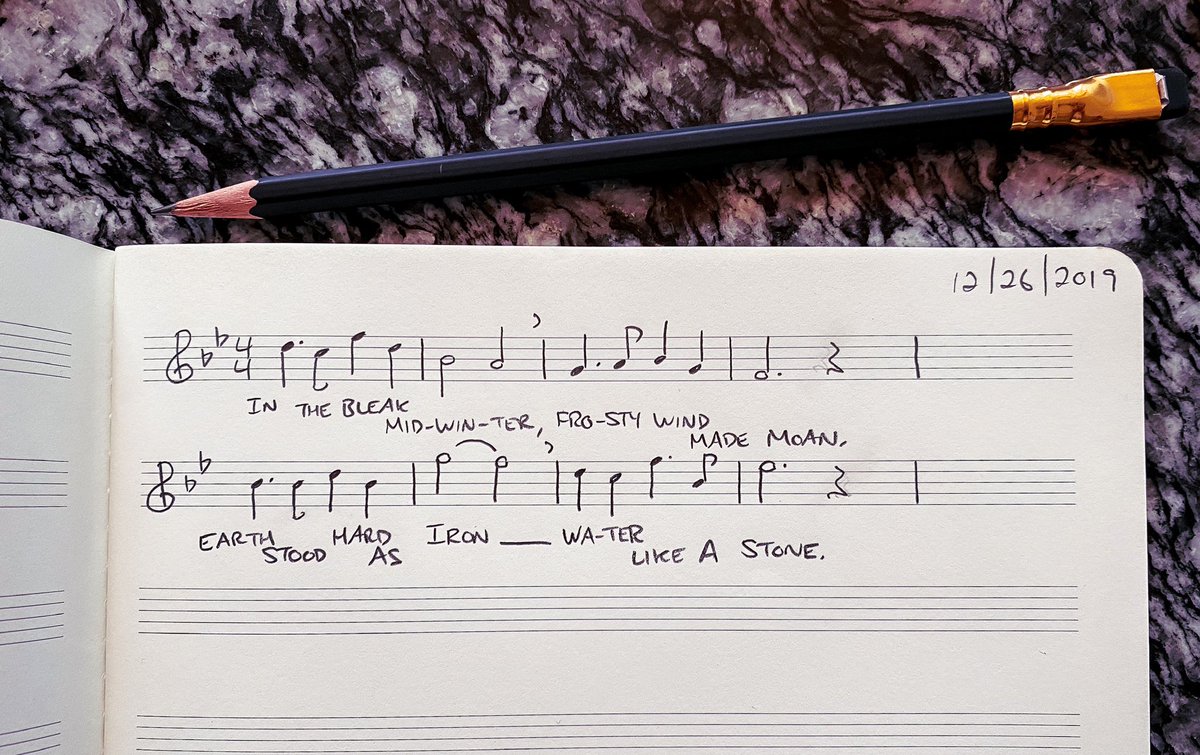 12/26/2019
4
4
IN THE BLEAK
MID-WIN-TER, FRO-STY WIND
MADE MOAN.
EARTH HARD IRON — WA-TER
STOOD AS LIKE A STONE.